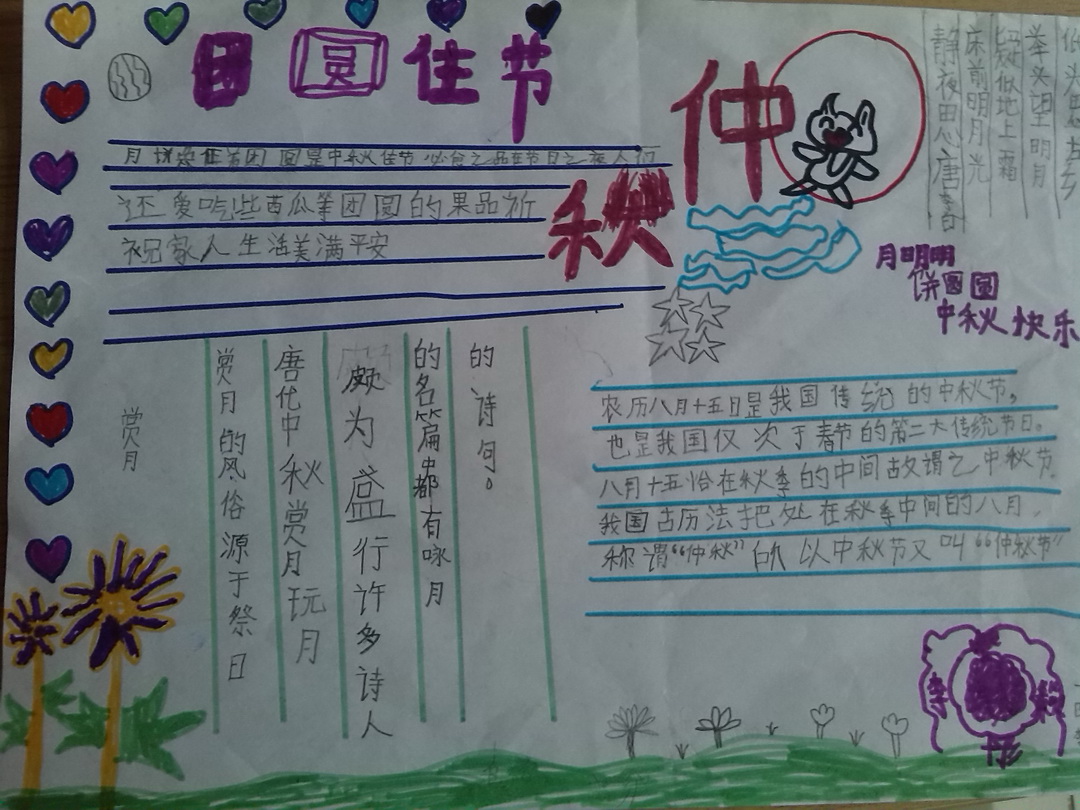 团圆住节
仲
秋
月饼
中秋佳节必食之品在节日之夜人们
还爱吃些西瓜等团圆的果品祈
祝家人生活美满平安
静夜思唐
床前明月光
疑似地上霜
举头望明月
月明明
饼圆圆
中秋快乐
赏月
赏月的风俗源于祭日
唐代中秋赏月玩月
颇为盛行许多诗人
的名篇中都有咏月
的诗句。
农历八月十五日是我国传统的中秋节,
也是我国仅次于春节的第二大传统节日。
八月十五恰在秋季的中间故谓之中秋节.
我国古历法把处在秋季中间的八月.
称谓“仲秋”的以中秋节又叫“仲秋节”